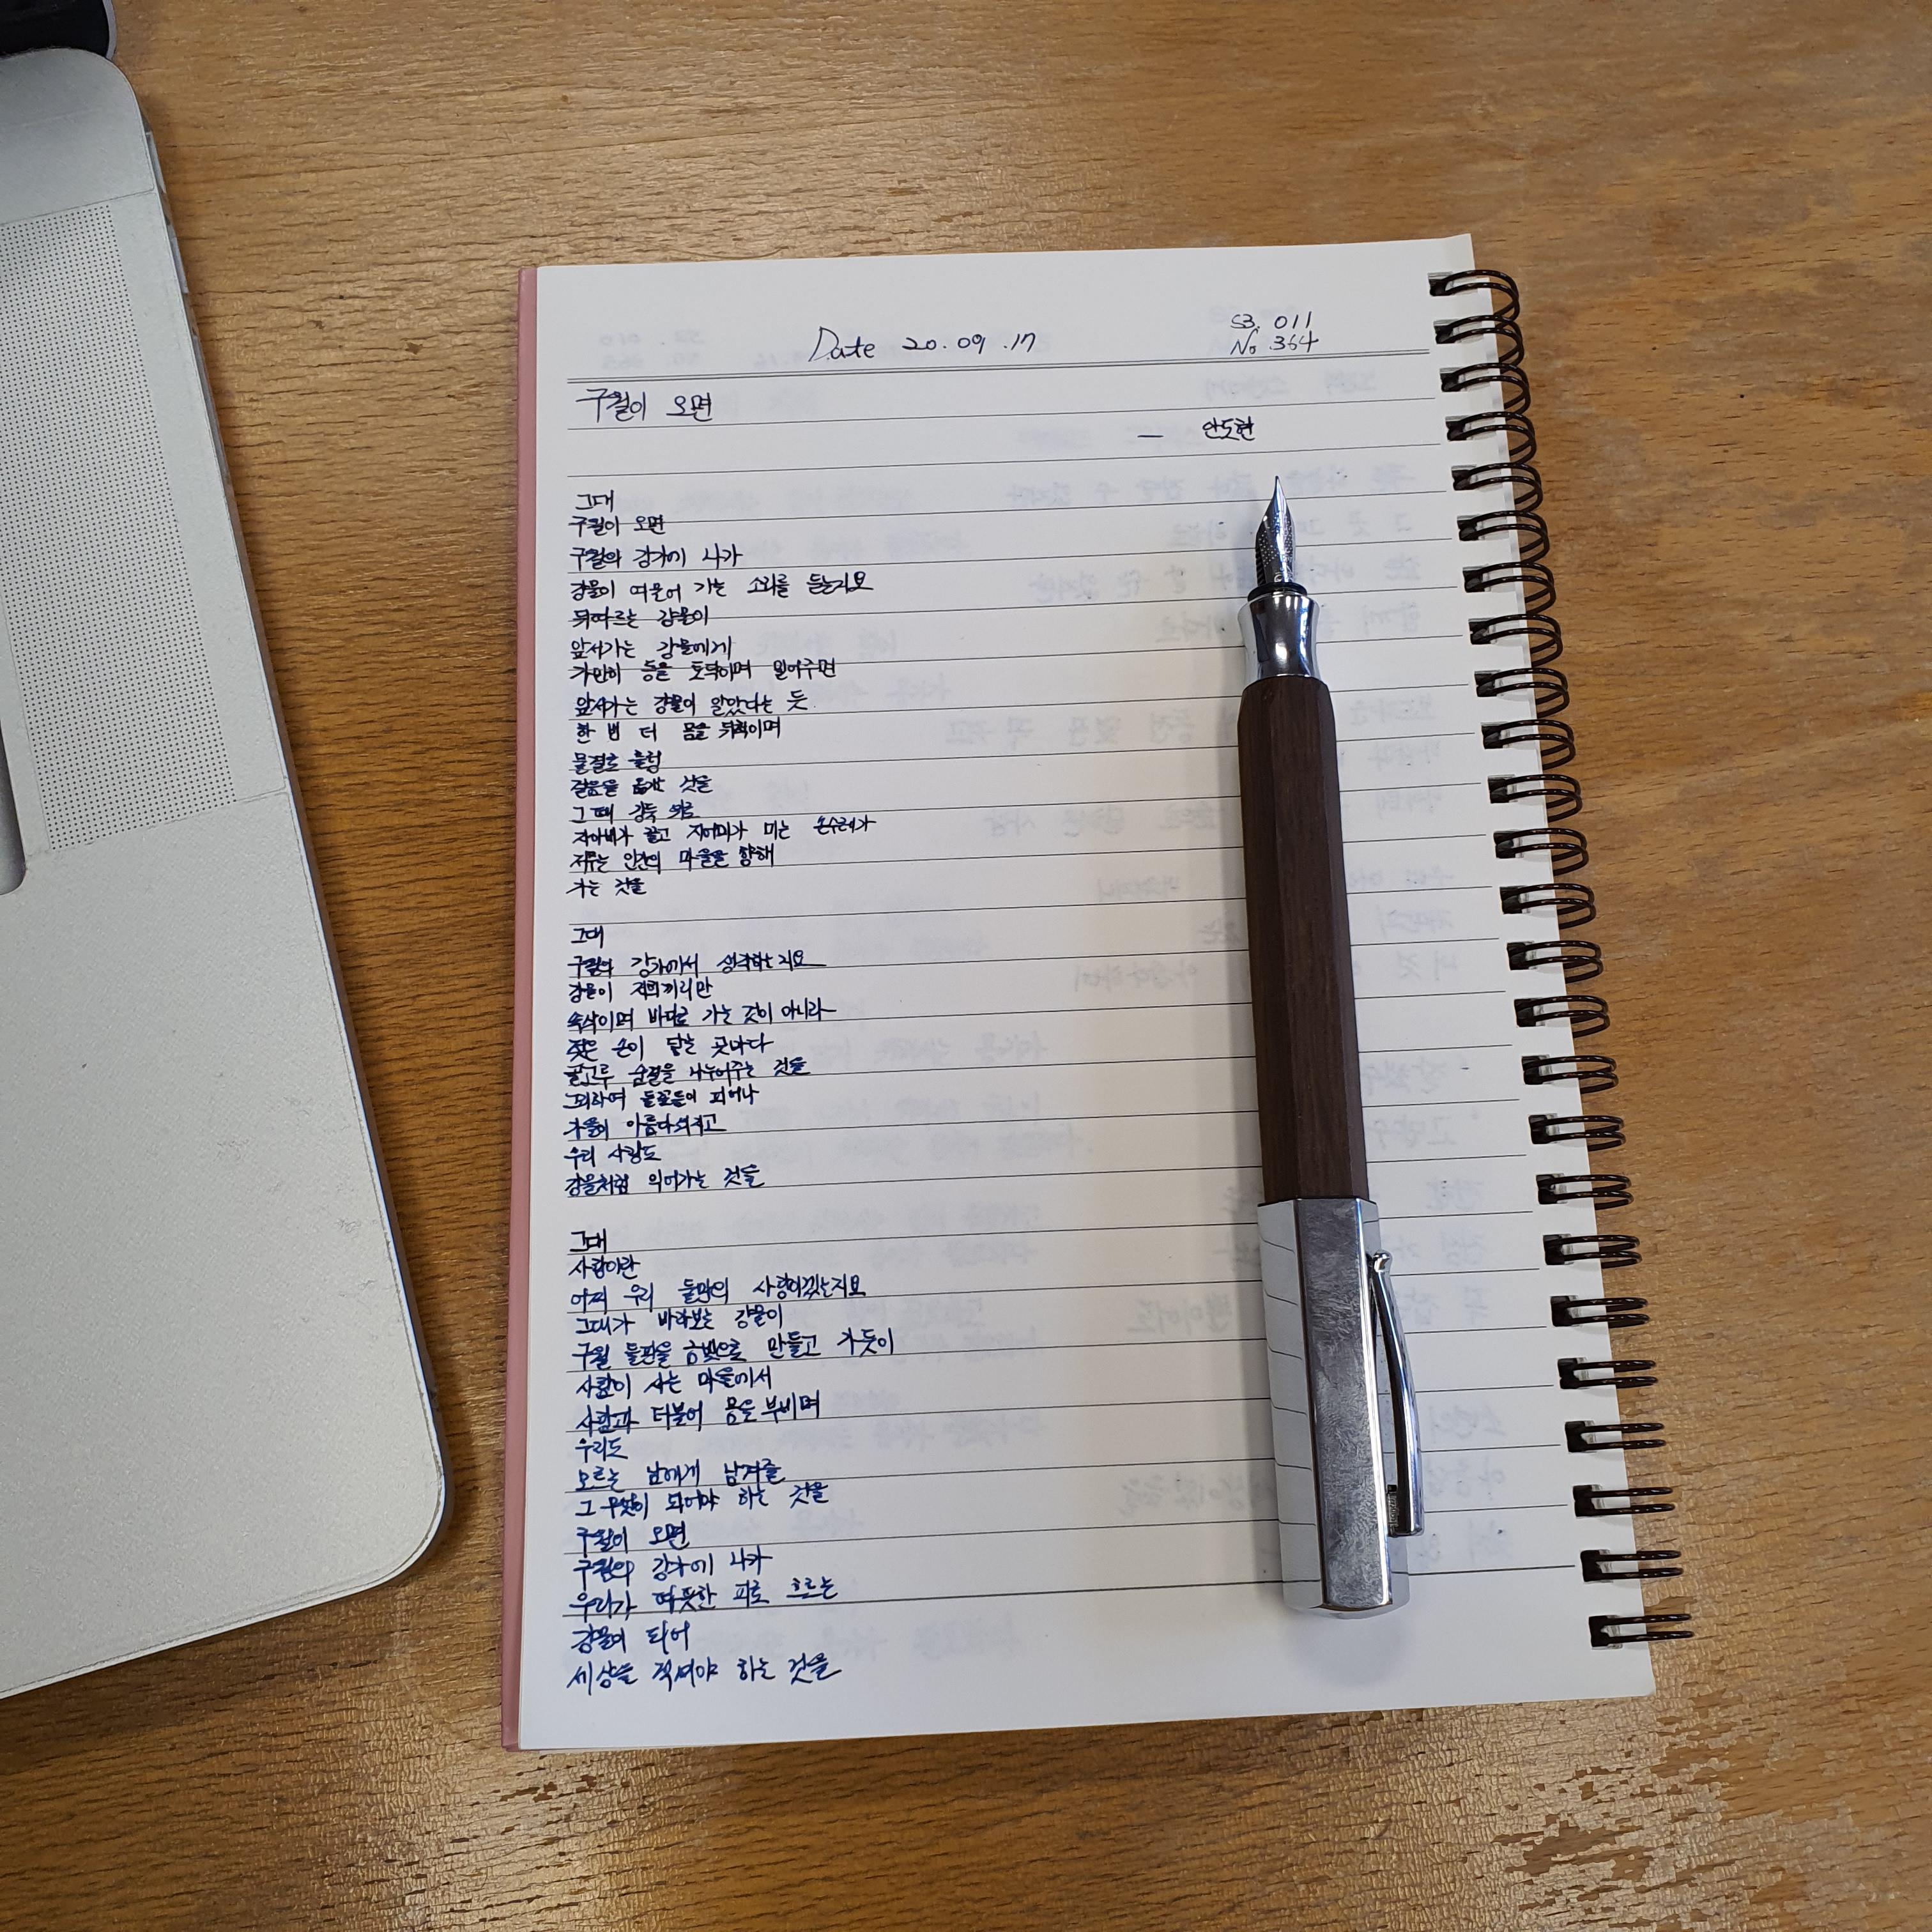 Date 20.09.17
S3. 011
No 364
구월이 오면
— 안도현
그대
구월이 오면
구월의 강가에 나가
강물이 여물어 가는 소리를 듣는지요
뒤따르는 강물이
앞서가는 강물에게
가만히 등을 토닥이며 밀어주면
앞서가는 강물이 알았다는 듯
한 번 더 몸을 뒤척이며
물결로 출렁
걸음을 옮기는 것을
그 때 강둑 위로
지아비가 끌고 지어미가 미는 손수레가
저무는 인간의 마을을 향해
가는 것을
그대
구월의 강가에서 생각하는지요
강물이 저희끼리만
속삭이며 바다로 가는 것이 아니라
젖은 손이 닿는 곳마다
골고루 숨결을 나누어주는 것을
그리하여 들꽃들이 피어나
가을이 아름다워지고
우리 사랑도
강물처럼 익어가는 것을
그대
사랑이란
어찌 우리 둘만의 사랑이겠는지요
그대가 바라보는 강물이
구월 들판을 금빛으로 만들고 가듯이
사람이 사는 마을에서
사람과 더불어 몸을 부비며
우리도
모르는 남에게 남겨줄
그 무엇이 되어야 하는 것을
구월이 오면
구월의 강가에 나가
우리가 따뜻한 피로 흐르는
강물이 되어
세상을 적셔야 하는 것을